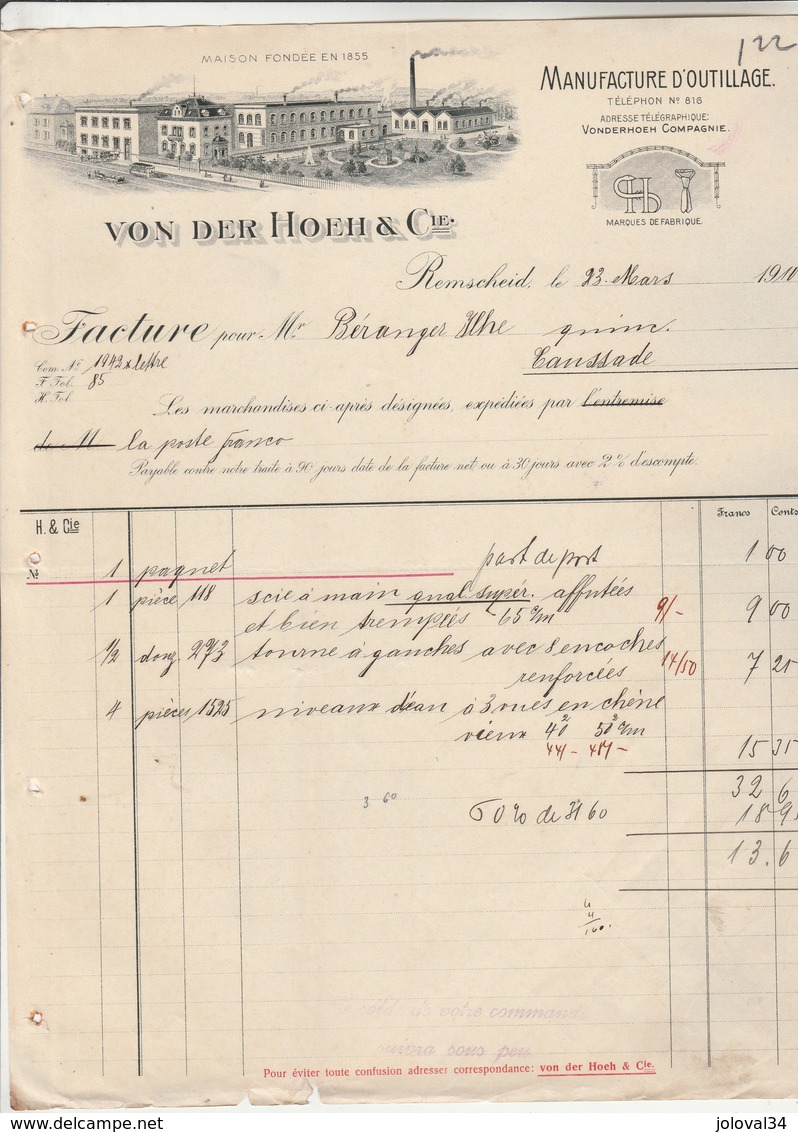 122
MAISON FONDÉE EN 1855
MANUFACTURE D'OUTILLAGE.
TÉLÉPHON Nº 816
ADRESSE TÉLÉGRAPHIQUE:
VONDERHOEH COMPAGNIE.
MARQUES DE FABRIQUE.
VON DER HOEH & CIE.
Remscheid, le 23. Mars 1910
Facture pour Mr Béranger Ilhe quinc.
Caussade
Com. Nº 1942 x lettre
F. Fol. 85
H. Fol.
Les marchandises ci-après désignées, expédiées par l'entremise
de M la poste franco
Payable contre notre traite à 90 jours date de la facture net ou à 30 jours avec 2% d'escompte.
H. & Cie Francs Cents
Nº 1 paquet part de port 1 00
1 pièce 118 scie à main qual. supér. affutées
et bien trempées 65 c/m 9/- 9 00
1/2 douz. 273 tourne à gauches avec 8 encoches
renforcées 14/50 7 25
4 pièces 1525 niveaux d'eau à 3 vues en chêne
vieux 40² 50² c/m
44- 47- 15 35
32 6
3 60 60 % de 31 60 18 9
13.6
4
4
160.
le solde de votre commande
suivra sous peu
Pour éviter toute confusion adresser correspondance: von der Hoeh & Cie.
delcampe.net
joloval34